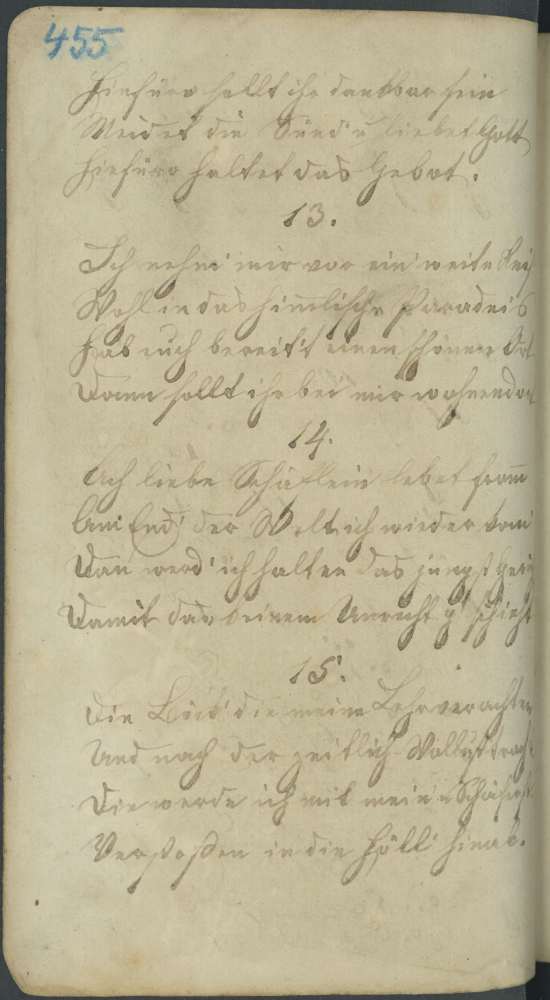 455
Hinfüro sollt ihr dankbar sein
Meidet die Sünd' u. liebet Gott
Hinfüro haltet das Gebot.
13.
Ich nehm' mir vor ein' weite Reis
Wohl in das himmlische Paradeis
Hab euch bereit't einen schönen Ort
Dann sollt ihr bei mir wohnen dort
14.
Ach liebe Schäflein lebet from̄
Am End' der Welt ich wieder kom̄
Dan werd' ich halten das jüngst Geri
Damit das keinem Unrecht g'schieht
15.
Die Leut' die meine Lehr verachten
Und nach der zeitlich Wollust tracht
Die werde ich mit mein'n
Verstoßen in die Höll' hinab.